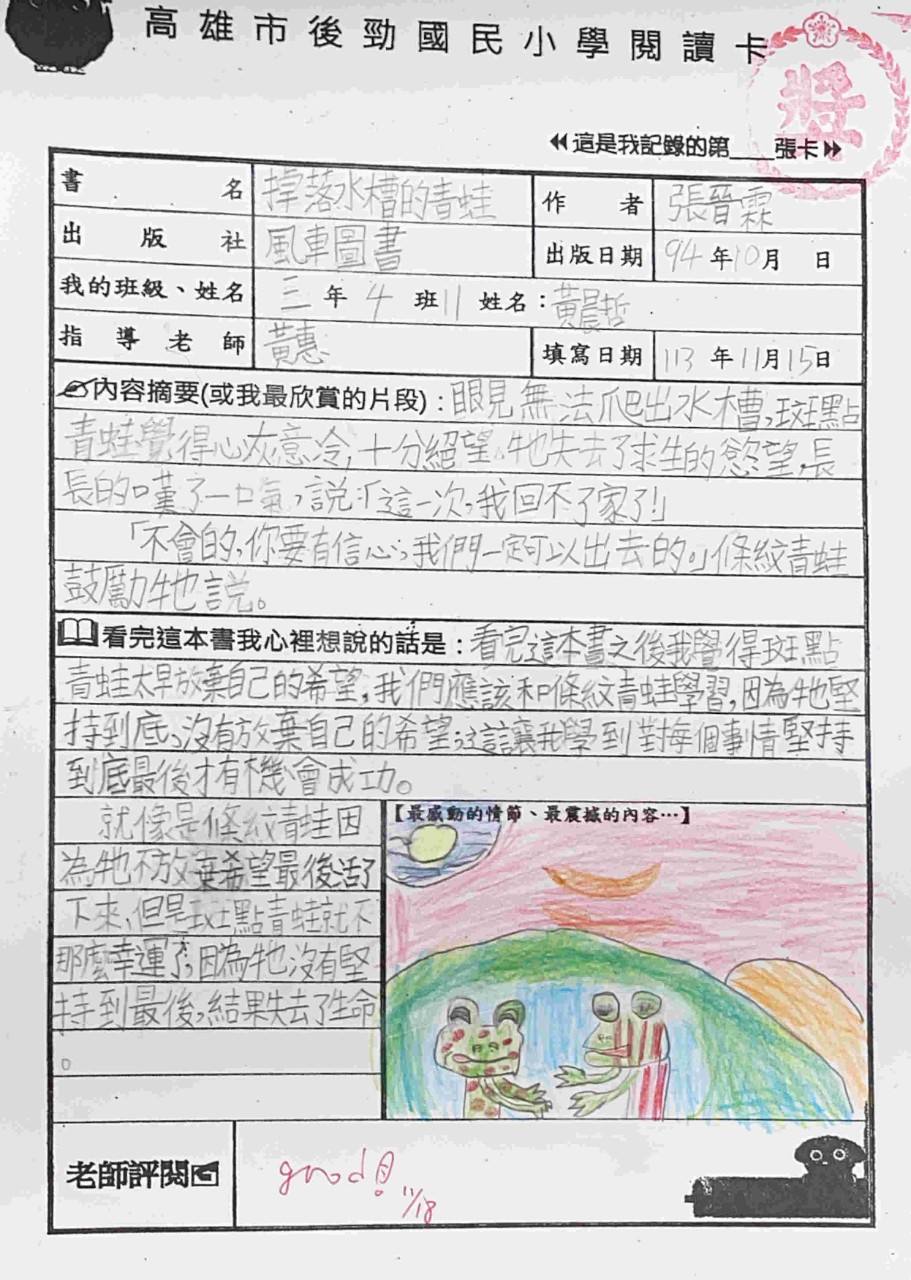 高雄市後勁國民小學閱讀卡
獎
這是我記錄的第___張卡
書名 掉落水槽的青蛙 作者 張晉霖
出版社 風車圖書 出版日期 94年10月 日
我的班級、姓名 三年4班11 姓名：黃晨哲
指導老師 黃惠 填寫日期 113年11月15日
內容摘要(或我最欣賞的片段)：眼見無法爬出水槽，斑點
青蛙覺得心灰意冷，十分絕望。牠失去了求生的慾望，長
長的嘆了一口氣，說：「這一次，我回不了家了!」
「不會的，你要有信心，我們一定可以出去的。」條紋青蛙
鼓勵牠說。
看完這本書我心裡想說的話是：看完這本書之後我覺得斑點
青蛙太早放棄自己的希望，我們應該和條紋青蛙學習，因為牠堅
持到底、沒有放棄自己的希望；這讓我學到對每個事情堅持
到底最後才有機會成功。
就像是條紋青蛙因
為牠不放棄希望最後活了
下來，但是斑點青蛙就不
那麼幸運了，因為牠沒有堅
持到最後，結果失去了生命
。
【最感動的情節、最震撼的內容…】
老師評閱 good! 11/18